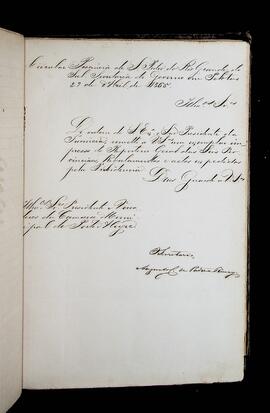 Circular Provincia de S. Pedro do Rio Grande do
Sul Secretaria do Governo em Pelotas
27 de Abril de 1865
Illmos Snrs
De ordem de S. Exª o Snr Presidente da
Provincia, remetto a VSas um exemplar im
presso do Repertorio Geral das Leis Pro
vinciais, Regulamentos e actos expedidos
pela Presidencia
Deos Guarde a VSas
Illmos Snrs Presidente e Verea
dores da Camara Muni
cipal de Porto Alegre
Secretario